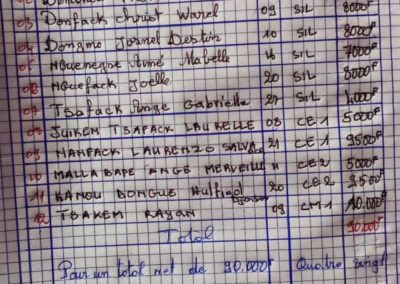 03 Donfack Christ Warel 09 SIL 8000F
04 Dongmo Jornel Destin 10 SIL 8000F
05 Nguenegne Aimé Mabelle 16 SIL 7000F
06 Nguefack Joelle 20 SIL 8000F
07 Tsafack Ange Gabrielle 27 SIL 4000F
08 JUIKEM TSAFACK LAURELLE 08 CE1 5000F
09 MANFACK LAURENZO SALVA 21 CE1 9500F
10 MALLA BAPE ANGE MERVEILLE 11 CE2 5000F
11 KANOU DONGUE 20 CE2 2500F
12 TSAKEM RAYAN 09 CM1 10.000F
Total 90.000F
Pour un total net de 90.000F Quatre vingt